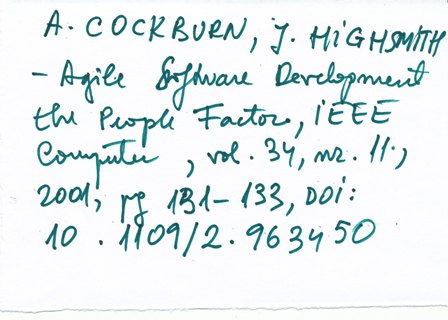 A. COCKBURN, J. HIGHSMITH
- Agile Software Development
the People Factor, IEEE
Computer, vol. 34, nr. 11.,
2001, pg 131-133, DOI:
10.1109/2.963450